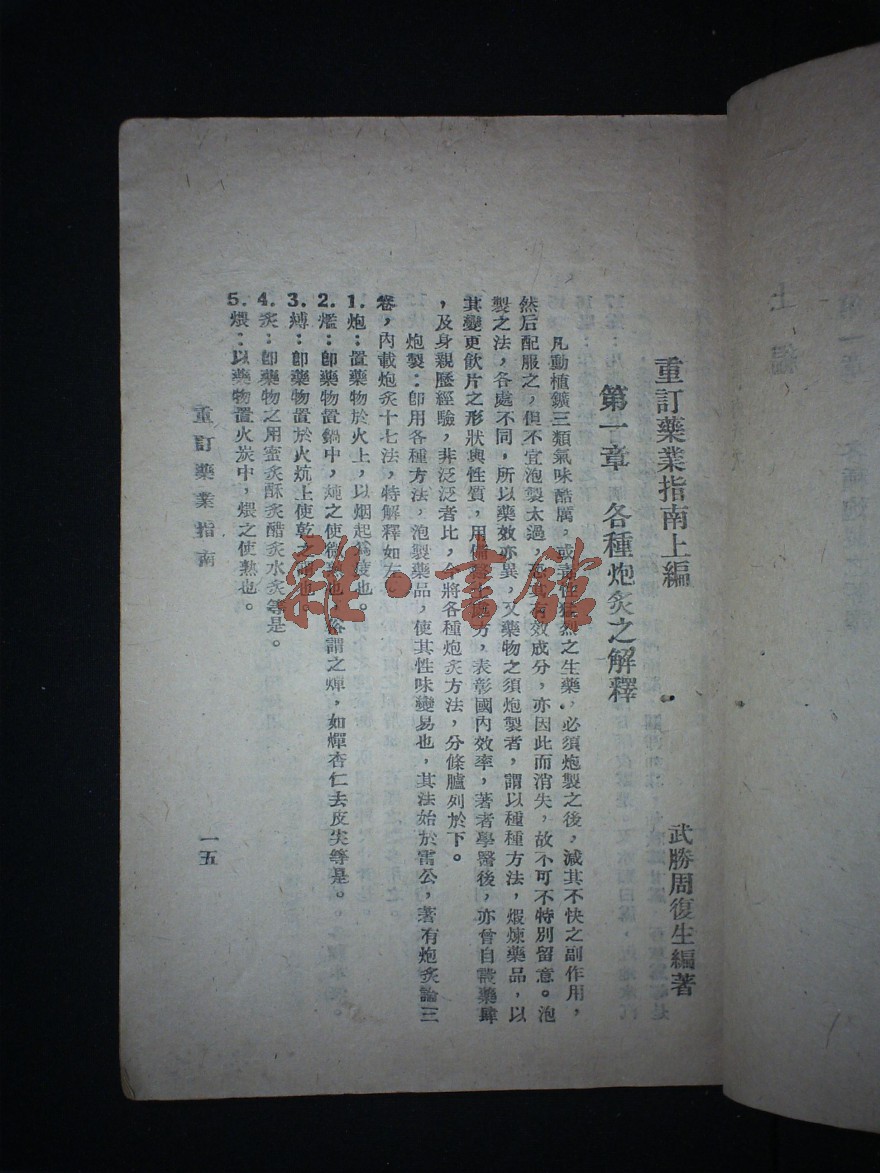 重訂藥業指南上編
武勝周復生編著
第一章 各種炮炙之解釋
凡動植鑛三類氣味酷厲，或毒性猛烈之生藥，必須炮製之後，減其不快之副作用，
然后配服之，但不宜泡製太過，恐其有效成分，亦因此而消失，故不可不特別留意。泡
製之法，各處不同，所以藥效亦異，又藥物之須炮製者，謂以種種方法，煅煉藥品，以
其變更飲片之形狀與性質，用備醫士處方，表彰國內效率，著者學醫後，亦曾自設藥肆
，及身親歷經驗，非泛泛者比，今將各種炮炙方法，分條臚列於下。
炮製：卽用各種方法，泡製藥品，使其性味變易也，其法始於雷公，著有炮炙論三
卷，內載炮炙十七法，特解釋如左
1.炮：置藥物於火上，以烟起爲度也。
2.爁：卽藥物置鍋中，炖之使微熟也，俗謂之燀，如燀杏仁去皮尖等是。
3.煿：卽藥物置於火炕上使乾之謂也。
4.炙：卽藥物之用蜜炙酥炙醋炙水炙等是。
5.煨：以藥物置火炭中，煨之使熟也。
重訂藥業指南
一五
雜·書館
上編